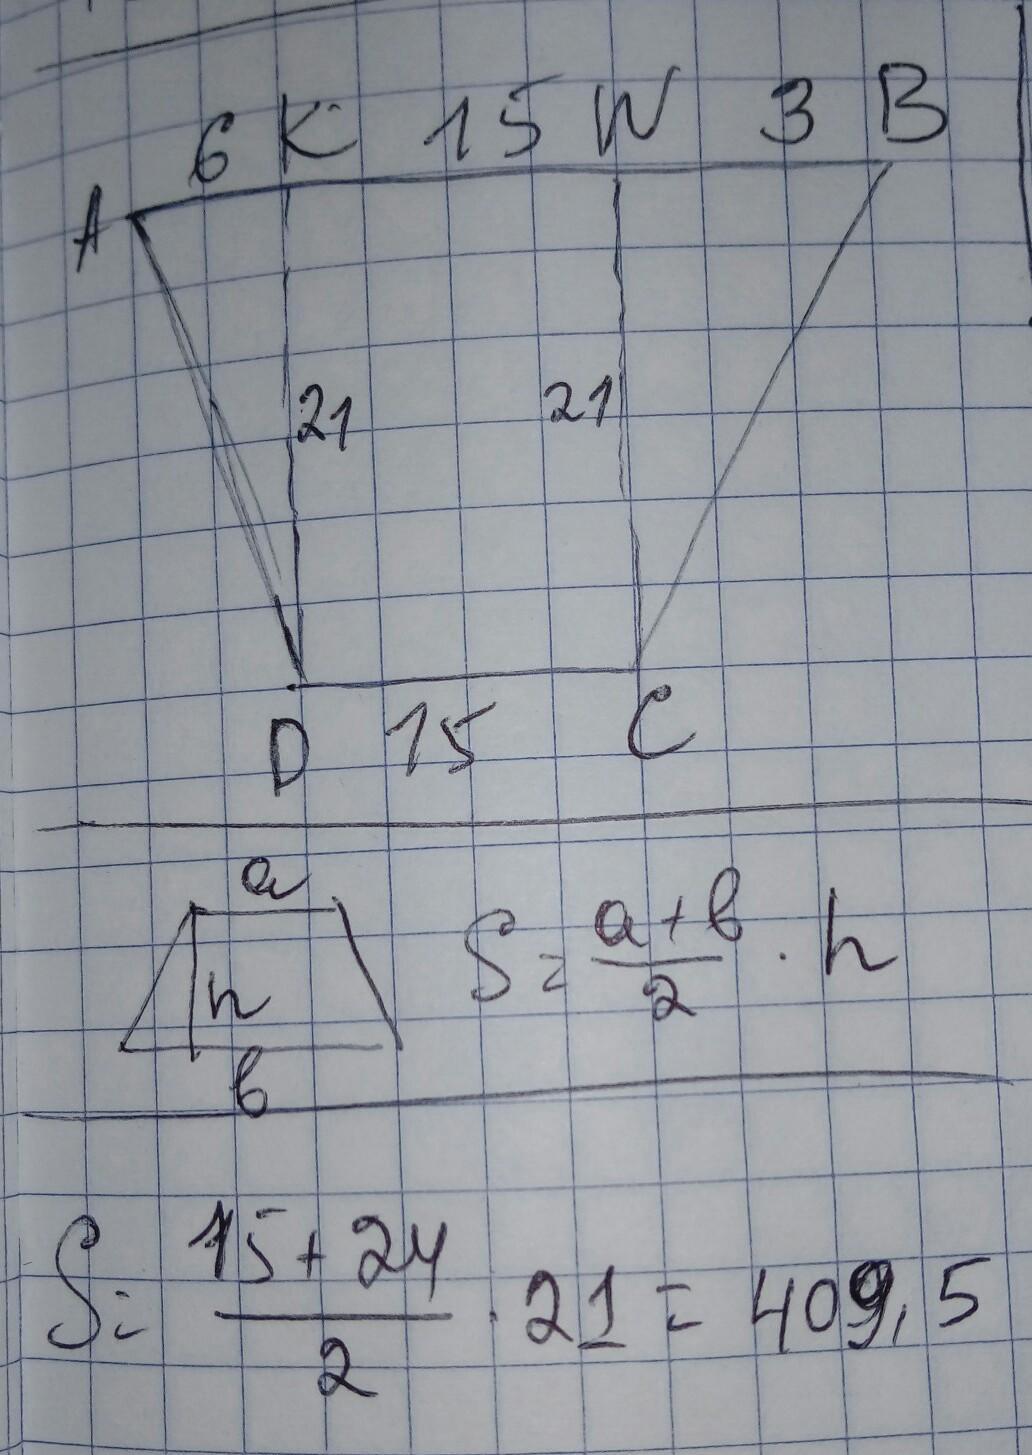 6 K 15 W 3 B
A
21 21
D 15 C
a
S = a + b / 2 · h
h
b
S = 15 + 24 / 2 · 21 = 409,5